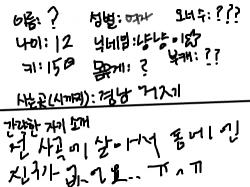 이름: ? 성별: 여자 오너수: ???
나이: 12 닉네임: 냥냥이
키: 150 몸무게: ? 북캐: ??
사는곳(시까게): 경남 거제
간략한 자기 소개
전 시골에 살아서 동네인
친구가 없어요.. ㅠㅠ